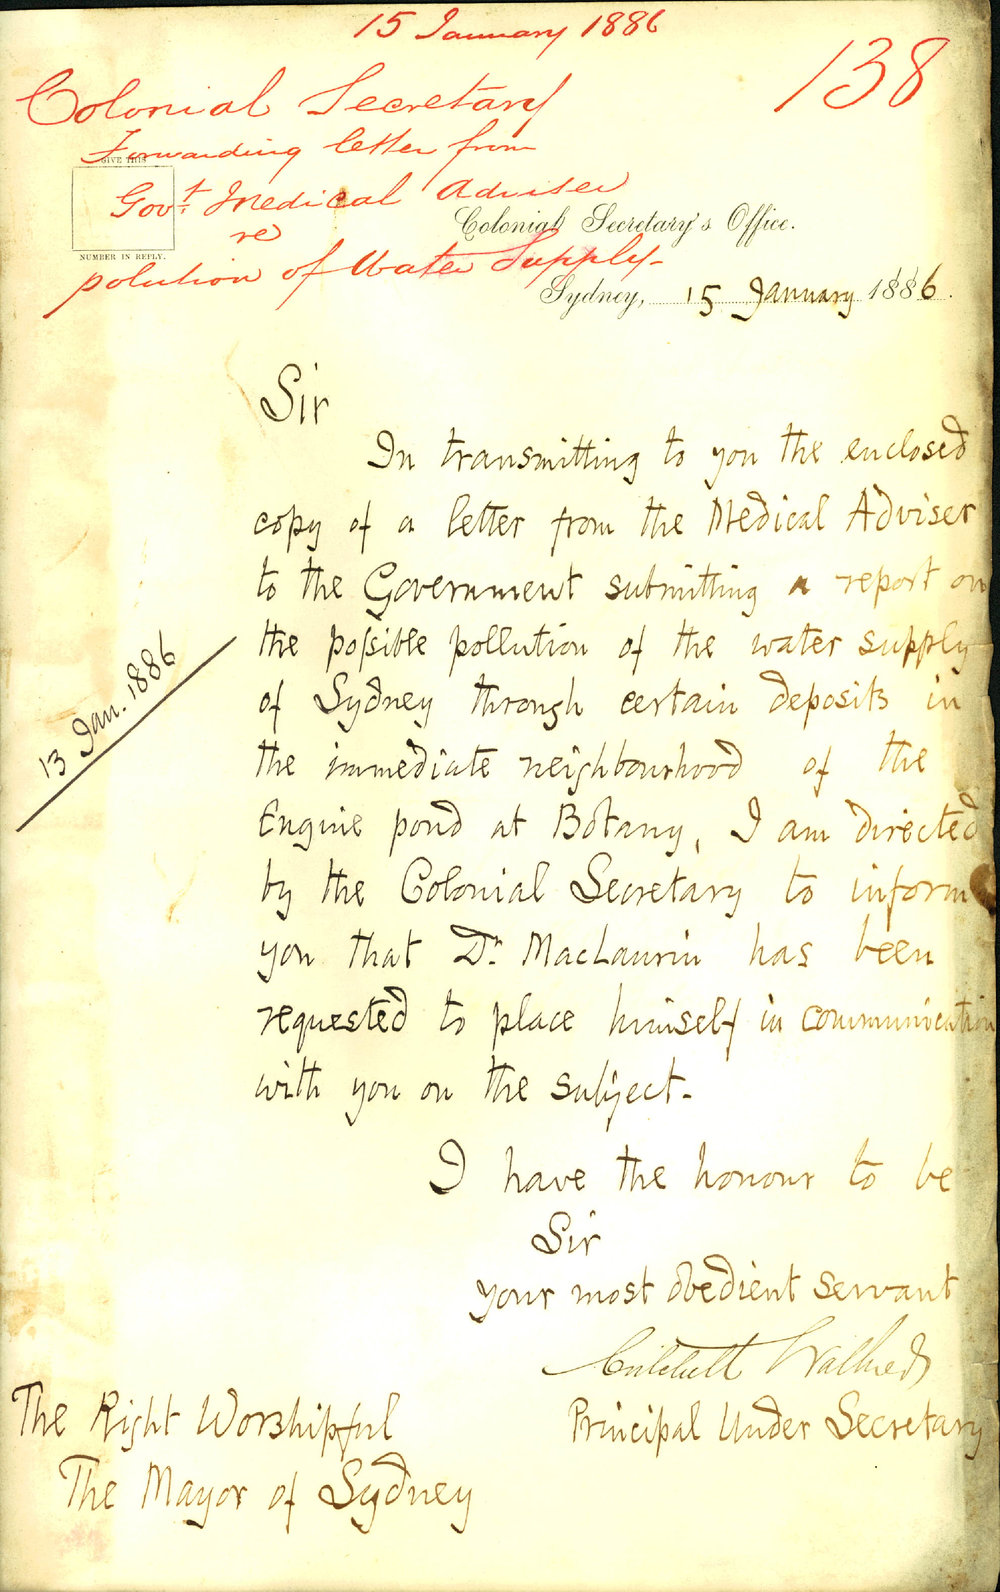 15 January 1886
138
Colonial Secretary
Forwarding letter from
GIVE THIS
Govt. Medical Adviser
re
polution of Water Supply-
NUMBER IN REPLY.
Colonial Secretary's Office.
Sydney, 15 January 1886.
Sir
In transmitting to you the enclosed
copy of a letter from the Medical Adviser
to the Government submitting a report on
the possible pollution of the water supply
of Sydney through certain deposits in
13 Jan. 1886
the immediate neighbourhood of the
Engine pond at Botany, I am directed
by the Colonial Secretary to inform
you that Dr. MacLaurin has been
requested to place himself in communication
with you on the subject-
I have the honour to be
Sir
your most obedient servant
Principal Under Secretary
The Right Worshipful
The Mayor of Sydney